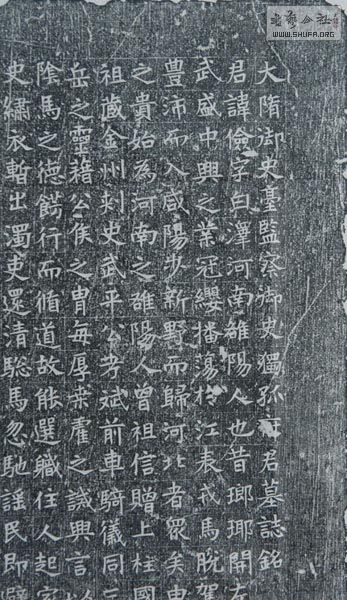 WWW.SHUFA.ORG
大隋御史臺監察御史獨孤君墓誌銘
君諱儉字白澤河南雒陽人也昔瑯瑘開
武盛中興之業冠纓播蕩於江表戎馬脫駕
豐沛而入咸陽步新野而歸河北者眾矣
之貴始為河南之雒陽人曾祖信贈上柱國
祖藏金州刺史武平公考斌前車騎儀同三
岳之靈藉公侯之胄每厚葉霍之誡興言以
陰馬之德餝行而脩道故能選職任人起家
史繡衣暫出濁吏還清驄馬忽馳謠民即